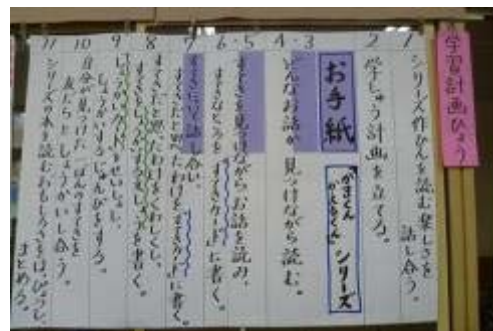 学習計画ひょう
1
シリーズ作ひんを読む楽しさを
話し合う。
2
学しゅう計画を立てる。
お手紙
がまくん
かえるくん
シリーズ
3・4
どんなお話か見つけながら読む。
5・6
すてきを見つけながらお話を読み、
すてきなところを「すてきカード」に書く。
7
すてきについて話し合い、
すてきだと思ったわけを「すてきカード」に書く。
8
すてきだと思ったわけをくわしくし、
書く。
9
せいりし、
しょうかいするじゅんびをする。
10
自分が見つけた一ばんのすてきを
友だちとしょうかいし合う。
11
シリーズの本を読むおもしろさをはっぴょうし、
まとめる。